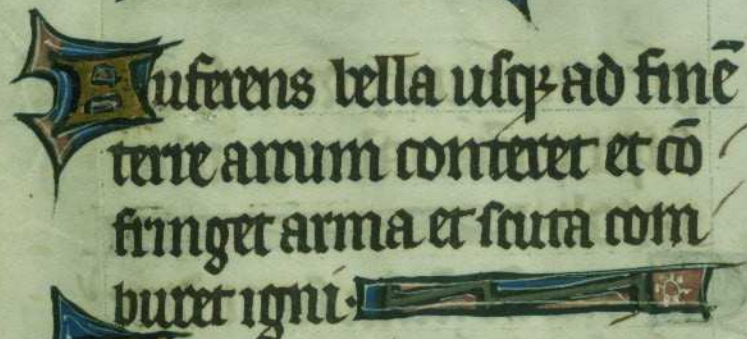 Auferens bella usqꝫ ad finē
terre arcum conteret et cō
fringet arma et scuta com
buret igni·